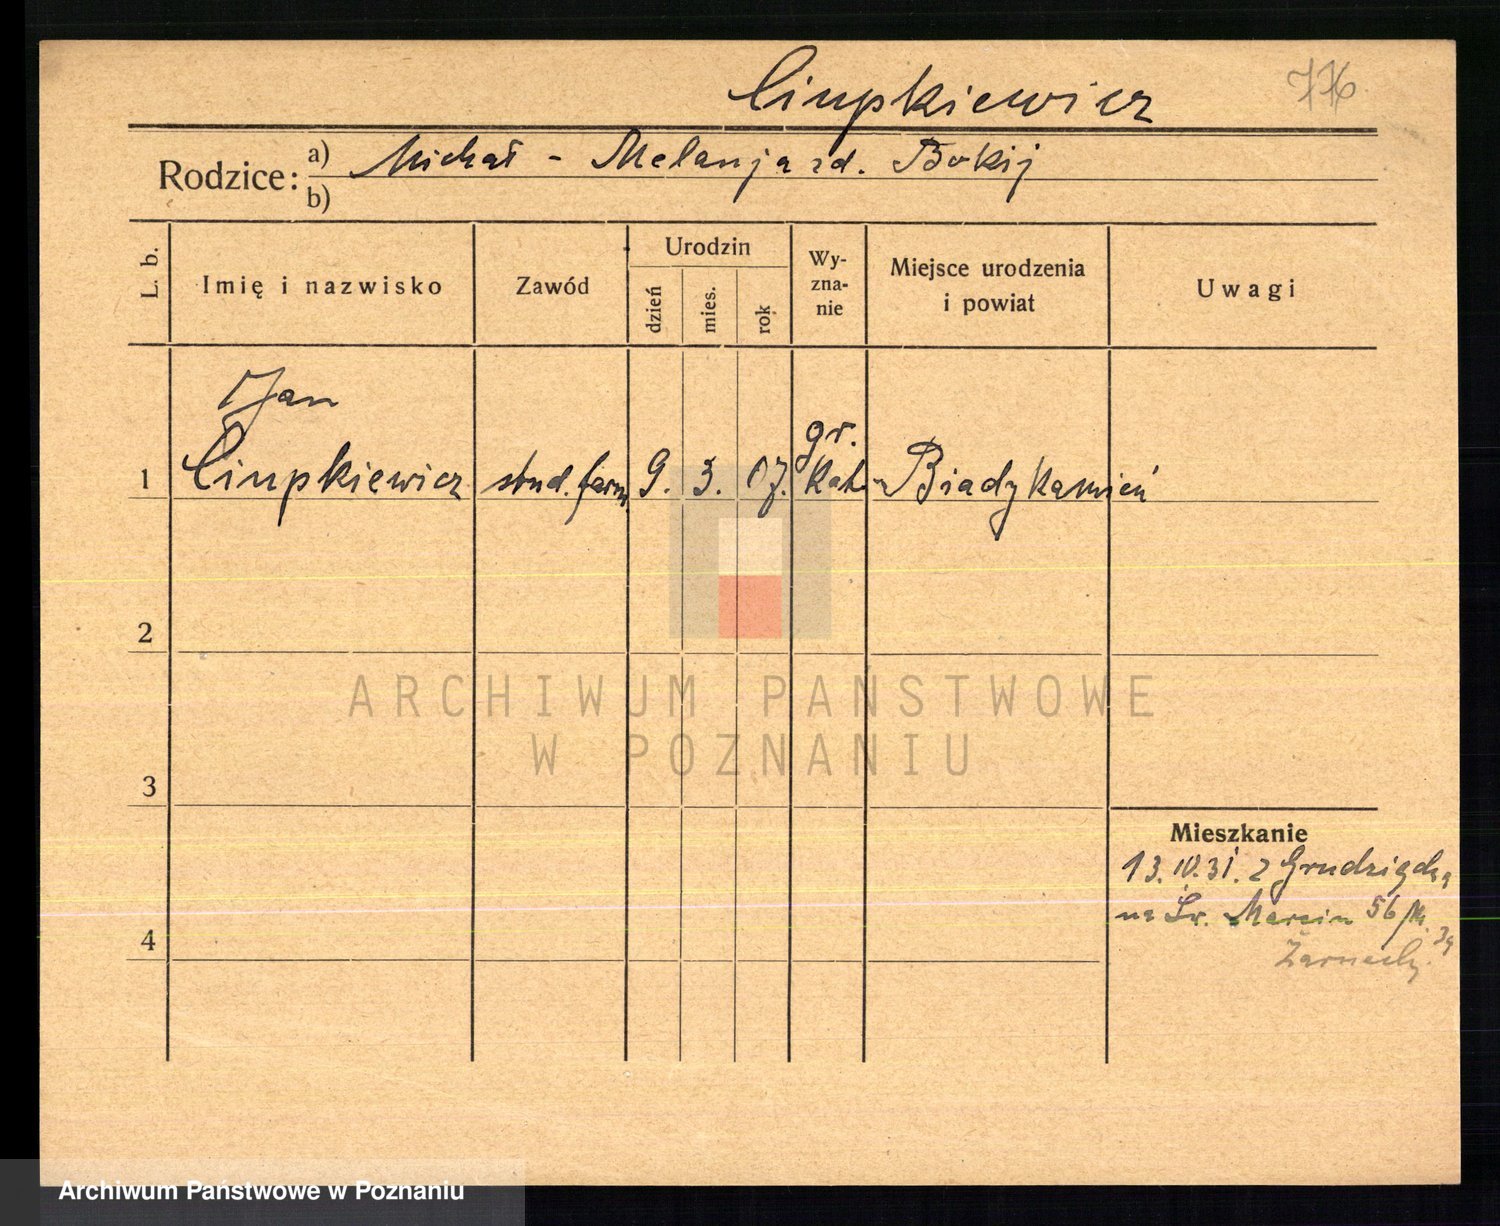 Ciupkiewicz
776
Rodzice: a) Michał - Melanja zd. Bokij
b)
L. b.
Imię i nazwisko
Zawód
Urodzin
dzień
mies.
rok
Wy-
zna-
nie
Miejsce urodzenia
i powiat
Uwagi
Jan
1 Ciupkiewicz stud. farm. 9. 3. 07. gr. kat. Biady Kamień
2
3
4
Mieszkanie
13. IV. 31. z Grudziądza
na Św. Marcin 56
ARCHIWUM PAŃSTWOWE
W POZNANIU
Archiwum Państwowe w Poznaniu